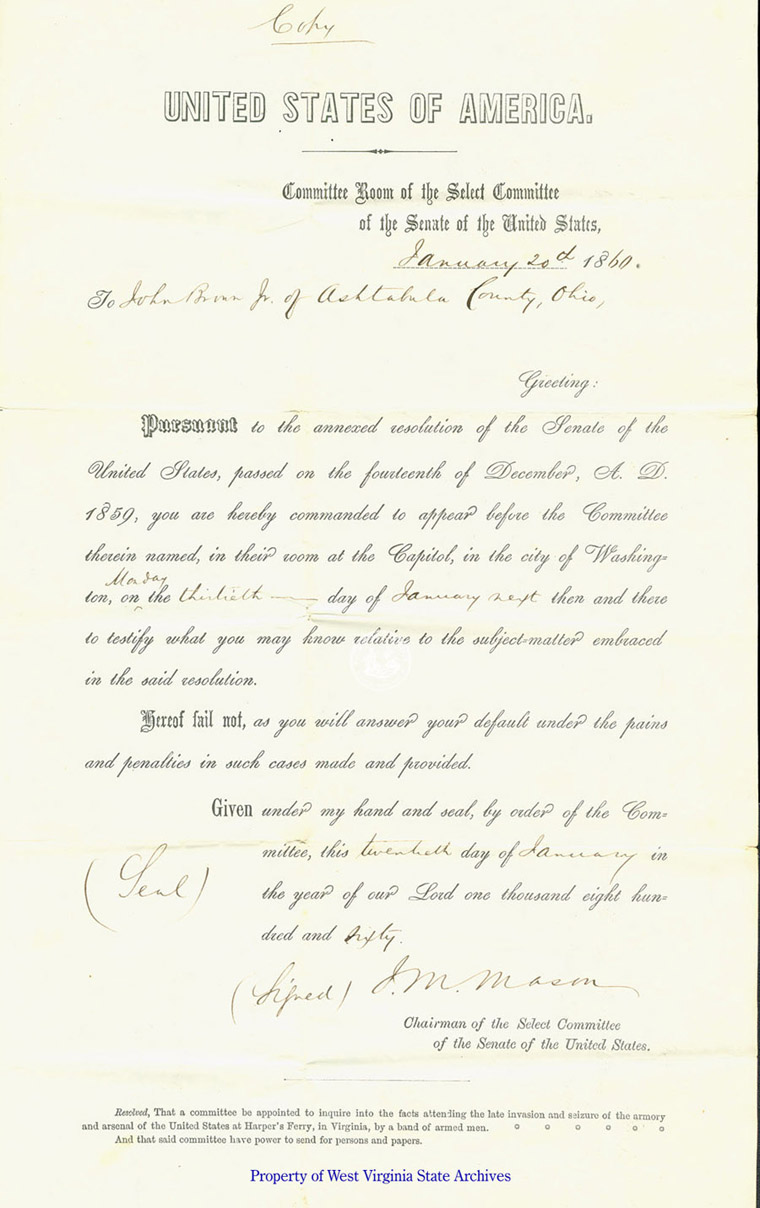 Copy
UNITED STATES OF AMERICA.
Committee Room of the Select Committee
of the Senate of the United States,
January 20d 1860.
To John Brown Jr. of Ashtabula County, Ohio,
Greeting:
Pursuant to the annexed resolution of the Senate of the
United States, passed on the fourteenth of December, A. D.
1859, you are hereby commanded to appear before the Committee
therein named, in their room at the Capitol, in the city of Washing=
Monday
ton, on the thirtieth day of January next then and there
to testify what you may know relative to the subject=matter embraced
in the said resolution.
Hereof fail not, as you will answer your default under the pains
and penalties in such cases made and provided.
Given under my hand and seal, by order of the Com=
mittee, this twentieth day of January in
(Seal)
the year of our Lord one thousand eight hun=
dred and sixty.
(Signed) J. M. Mason
Chairman of the Select Committee
of the Senate of the United States.
Resolved, That a committee be appointed to inquire into the facts attending the late invasion and seizure of the armory
and arsenal of the United States at Harper's Ferry, in Virginia, by a band of armed men. o o o o o o
And that said committee have power to send for persons and papers.
Property of West Virginia State Archives